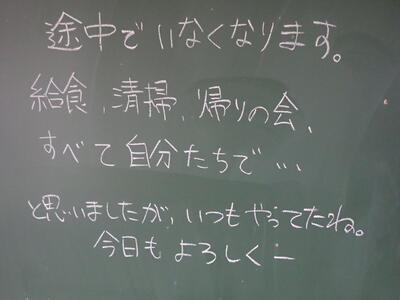 途中でいなくなります。
給食、清掃、帰りの会、
すべて自分たちで…
と思いましたが、いつもやってたね。
今日もよろしくー